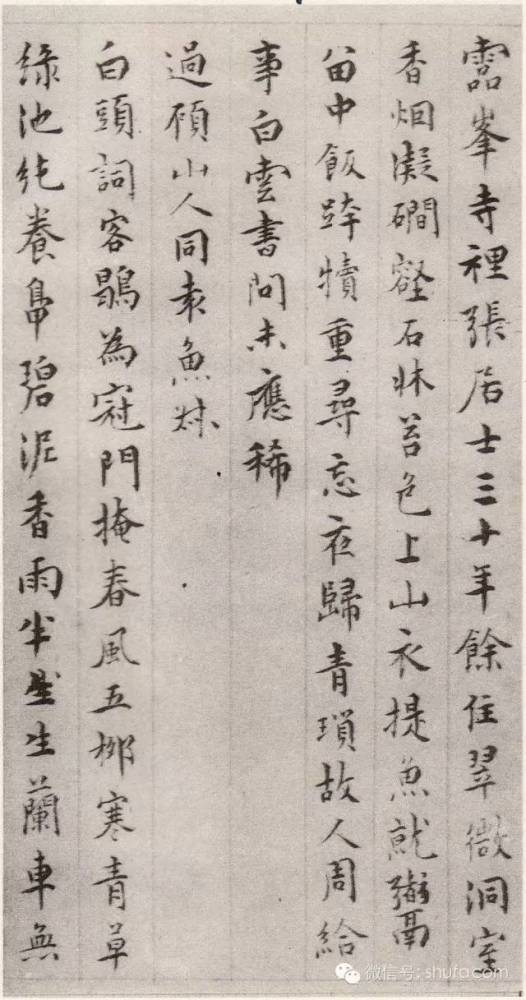 靈峯寺裡張居士三十年餘住翠微洞室
香烟凝磵壑石牀苔色上山衣提魚就鬻
畄中飯跨犢重尋忘夜歸青瑣故人周給
事白雲書問未應稀
過碩山人同袁魚
白頭詞客鶡為冠門掩春風五柳寒青草
綠池純養碧泥香雨半生蘭車無
微信号: shufa-com